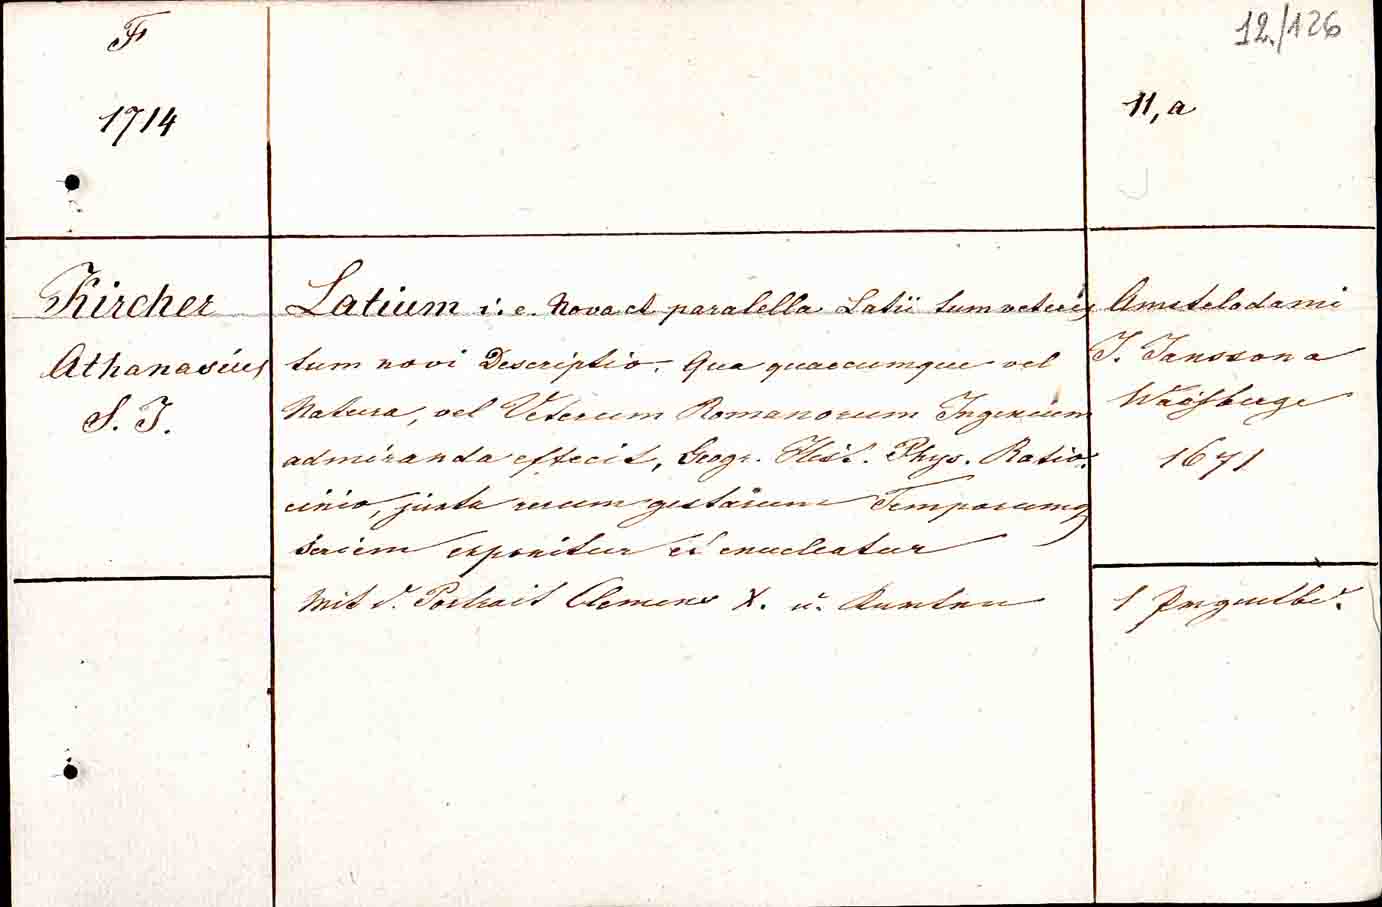 F
1714
12./126
11, a
Kircher
Athanasius
S. J.
Latium i. e. Nova et paralella Latii tum veteris
tum novi Descriptio. Qua quaecumque vel
Natura, vel Veterum Romanorum Ingenium
admiranda effecit, Geogr. Hist. Phys. Ratio-
cinio, juxta rerum gestarum Temporumq
seriem exponitur et enucleatur
Mit d. Portrait Clemens X. u.
Amstelodami
J. Jansson a
Waesberge
1671
1 Prgmtbd.